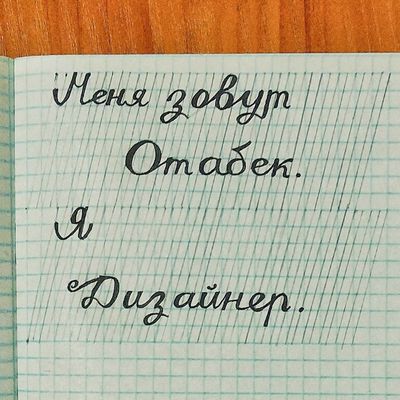 Меня зовут
Отабек.
Я
Дизайнер.